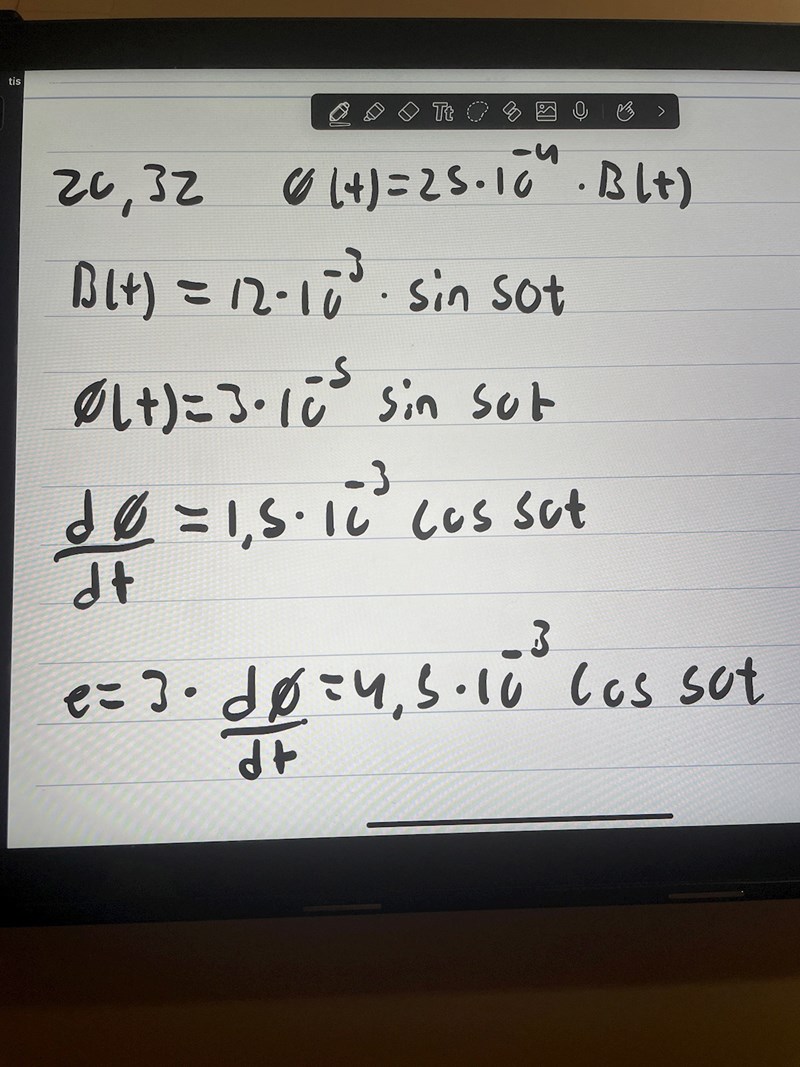 tis
Tt
20,32 Ø(t)=25·10⁻⁴·B(t)
B(t) = 12·10⁻³· sin 50t
Ø(t)=3·10⁻⁵ sin 50t
dØ/dt = 1,5·10⁻³ cos 50t
e=3· dØ/dt =4,5·10⁻³ cos 50t